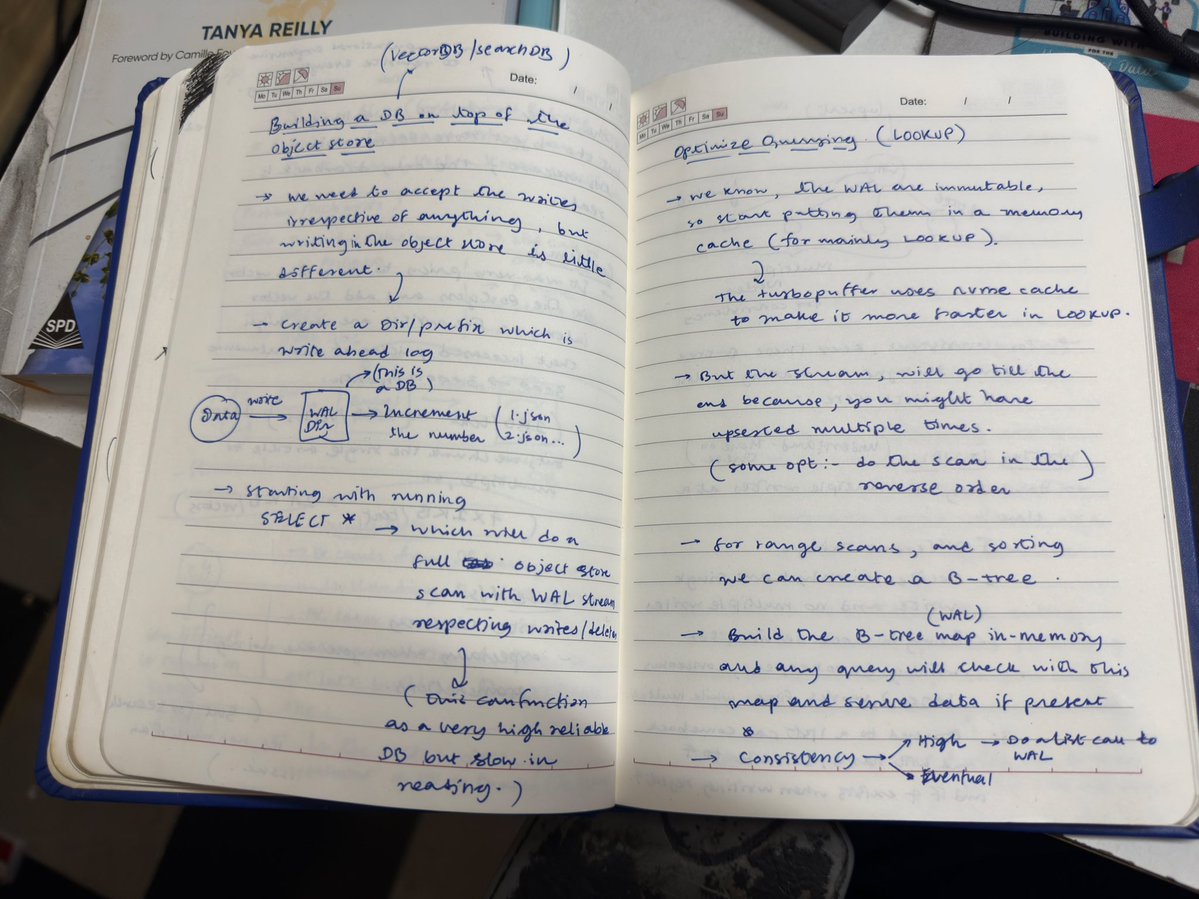 TANYA REILLY
Foreword by Camille Fou
SPD
BUILDING WITH
FOR THE
(vectorDB/searchDB)
Date: / /
Mo Tu We Th Fr Sa Su
Building a DB on top of the
object store
→ we need to accept the writes,
irrespective of anything, but
writing in the object store is little
different.
→ create a Dir/prefix which is
write ahead log
(This is
a DB)
Data write → WAL Dir → Increment the number (1.json 2.json...)
→ starting with running
SELECT * → which will do a
full object store
scan with WAL stream
respecting writes/delete
(this can function
as a very high reliable
DB but slow in
reading.)
Date: / /
Mo Tu We Th Fr Sa Su
Optimize Querying (LOOKUP)
→ we know, the WAL are immutable,
so start putting them in a memory
cache (for mainly LOOKUP).
The turbopuffer uses nvme cache
to make it more faster in LOOKUP.
→ But the stream, will go till the
end because, you might have
upserted multiple times.
(some opt:- do the scan in the
reverse order)
→ for range scans, and sorting
we can create a B-tree.
(WAL)
→ Build the B-tree map in-memory
and any query will check with this
map and serve data if present
→ Consistency → High → Do a list call to
WAL
→ Eventual